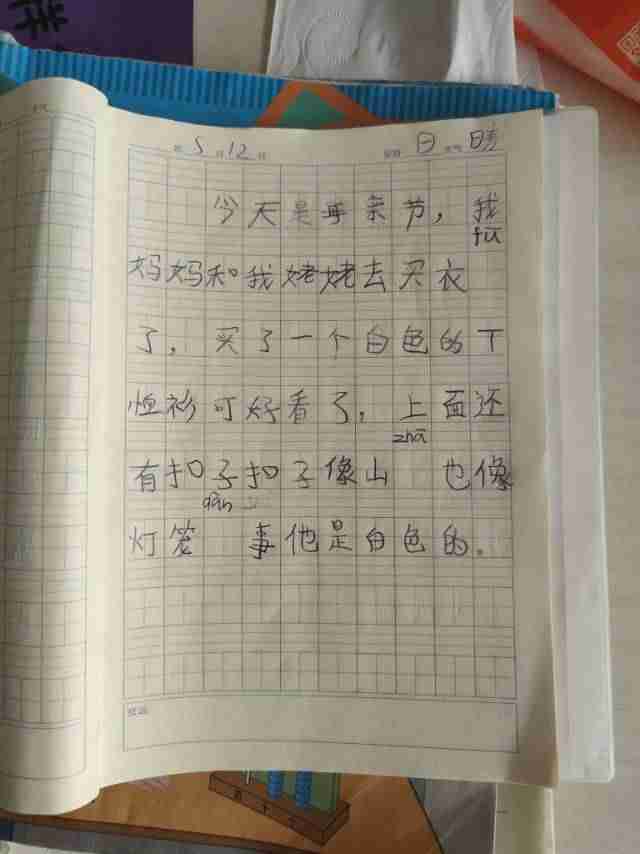 5 12 日 晴
今天是母亲节，我
fú
妈妈和我姥姥去买衣
了，买了一个白色的T
恤衫可好看了，上面还
zhā
有扣子扣子像山 也像
dàn
灯笼 事他是白色的。